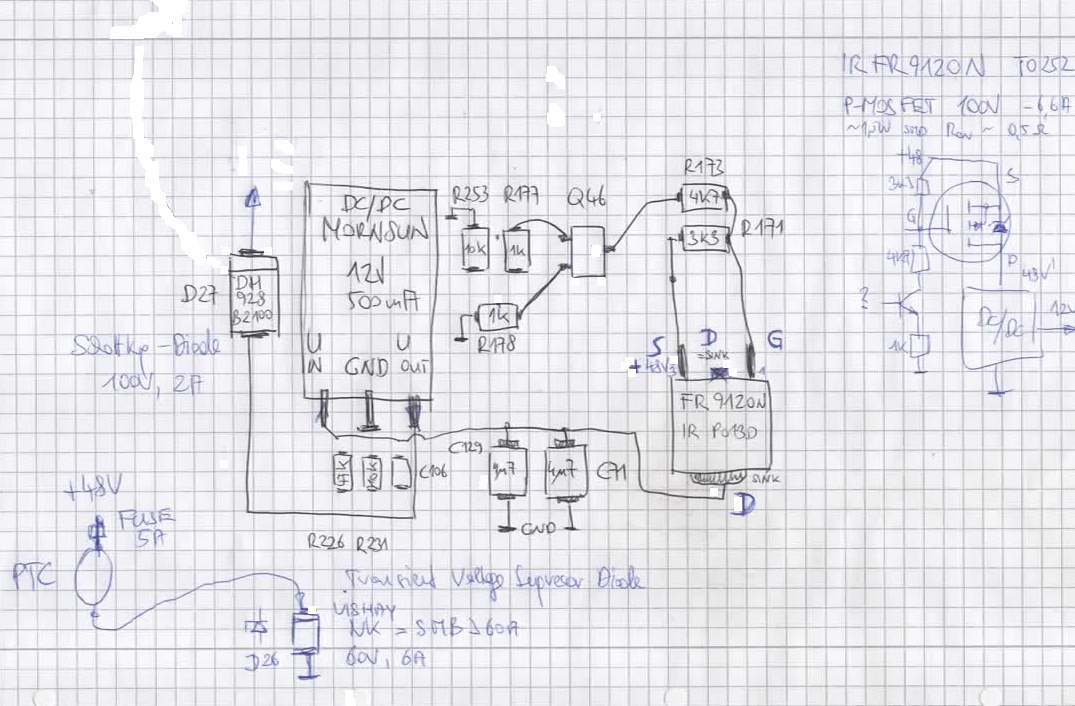 IRFR9120N TO252
P-MOSFET 100V -6,6A
~1,5W SMD Ron ~ 0,5Ω
+48
3k3
S
G
4k7
D
48V'
DC/DC
12V
?
1k
R173
4K7
3K3
R171
R253
R177
Q46
10k
1k
1k
R178
DC/DC
MORNSUN
12V
500mA
U
IN
GND
U
OUT
D27
DH
928
B2100
100V, 2A
S
D
=SINK
G
+48V
1
FR9120N
IR P013D
SINK
D
C129
4µ7
4µ7
C71
C106
GND
R226 R231
+48V
FUSE
5A
PTC
Transient Voltage Supresor Diode
VISHAY
NK = SMBJ60A
60V, 6A
D26